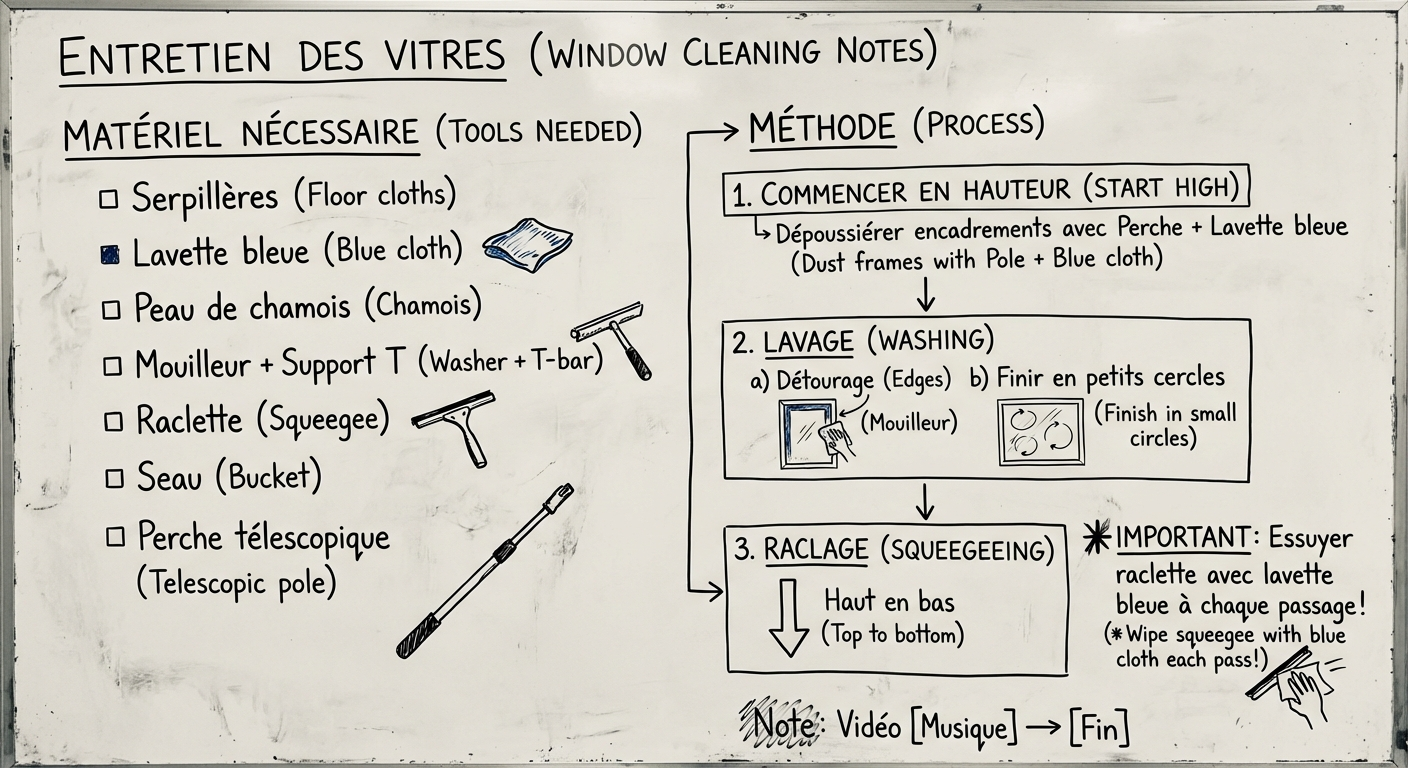 ENTRETIEN DES VITRES (WINDOW CLEANING NOTES)
MATÉRIEL NÉCESSAIRE (TOOLS NEEDED)
Serpillères (Floor cloths)
Lavette bleue (Blue cloth)
Peau de chamois (Chamois)
Mouilleur + Support T (Washer + T-bar)
Raclette (Squeegee)
Seau (Bucket)
Perche télescopique
(Telescopic pole)
MÉTHODE (PROCESS)
1. COMMENCER EN HAUTEUR (START HIGH)
Dépoussiérer encadrements avec Perche + Lavette bleue
(Dust frames with Pole + Blue cloth)
2. LAVAGE (WASHING)
a) Détourage (Edges)
(Mouilleur)
b) Finir en petits cercles
(Finish in small
circles)
3. RACLAGE (SQUEEGEEING)
Haut en bas
(Top to bottom)
* IMPORTANT: Essuyer
raclette avec lavette
bleue à chaque passage!
(* Wipe squeegee with blue
cloth each pass!)
Note: Vidéo [Musique] → [Fin]